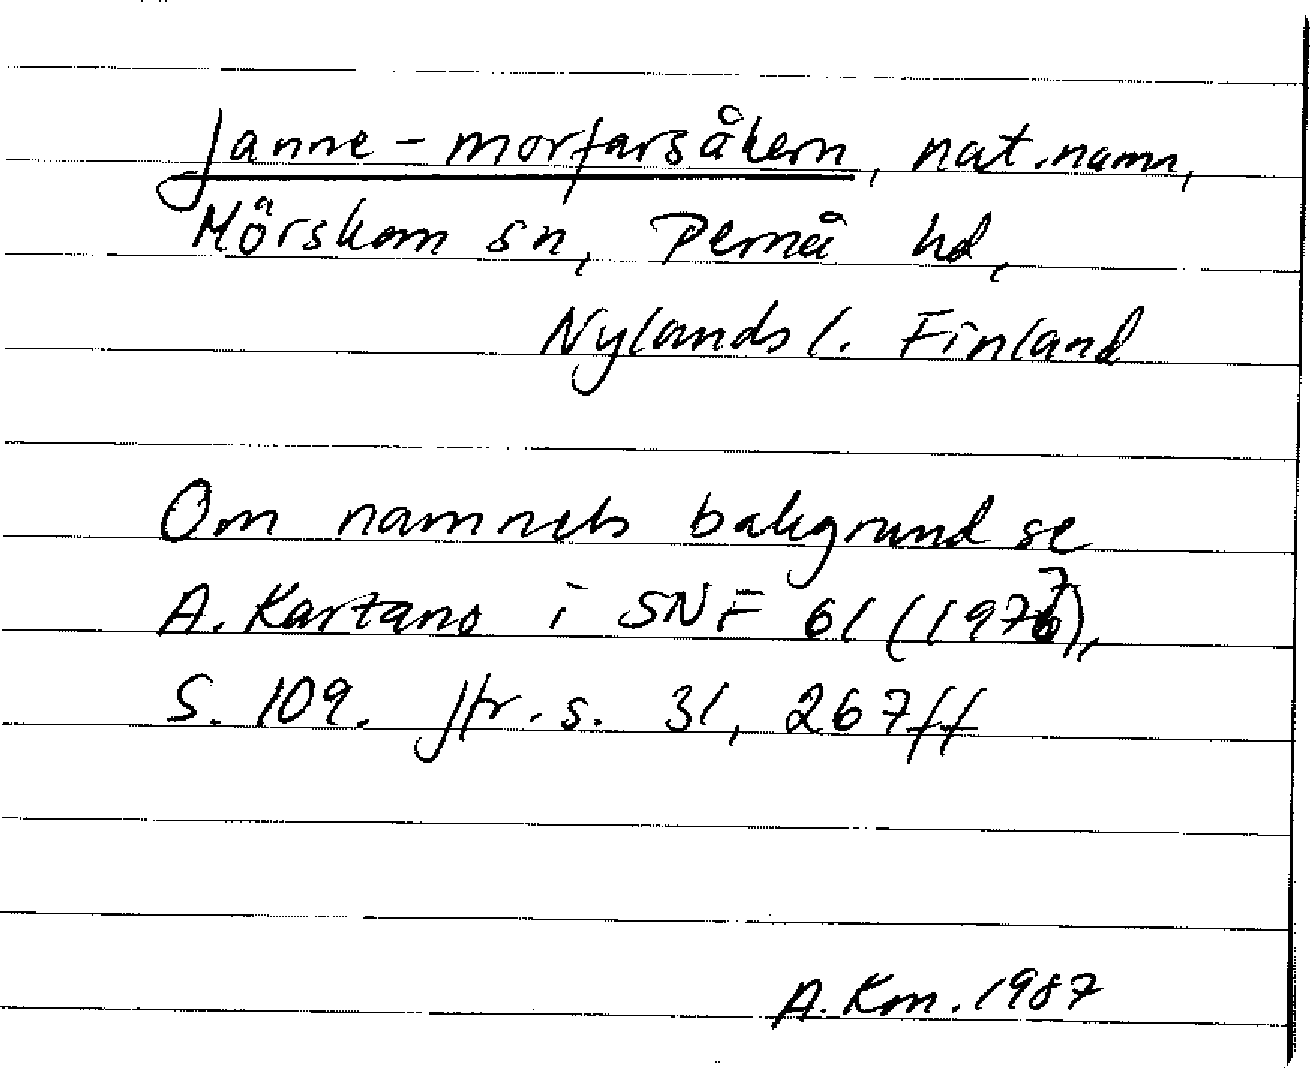 Janne-morfarsåkern, nat.namn,
Mörskom sn, Pernå hd,
Nylands l. Finland
Om namnets bakgrund se
A. Kartano i SNF 61 (1977),
S. 109. Jfr. s. 31, 267ff
A. Km. 1987